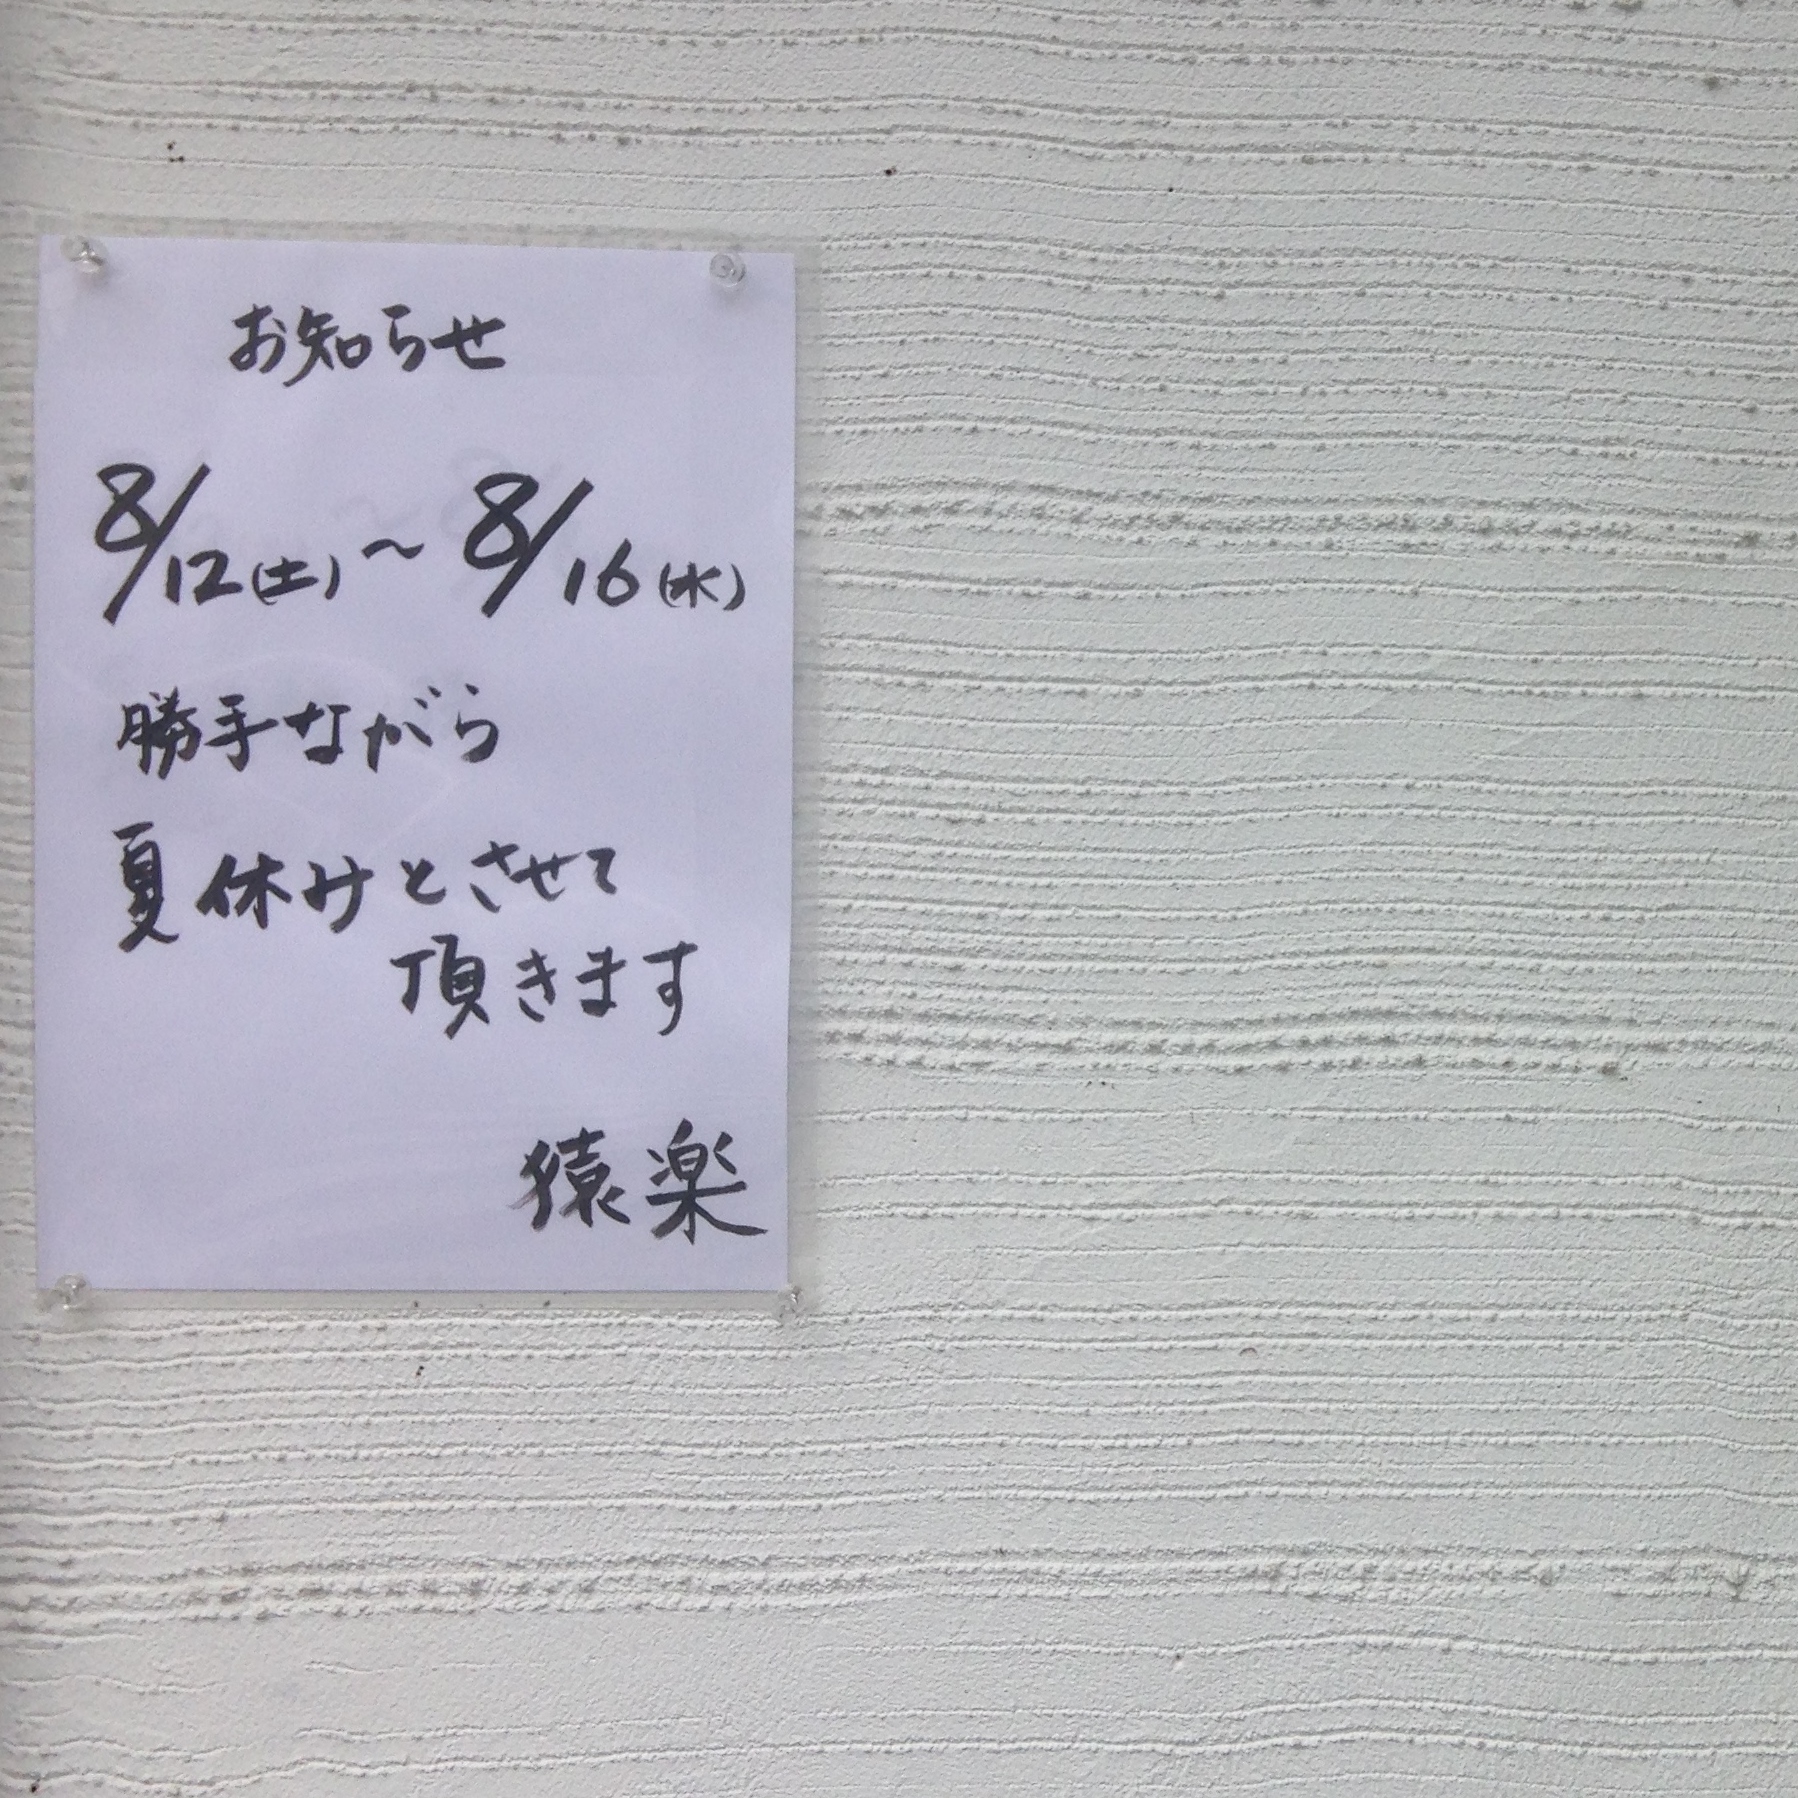 お知らせ
8/12(土)〜8/16(水)
勝手ながら
夏休みとさせて
頂きます
猿楽